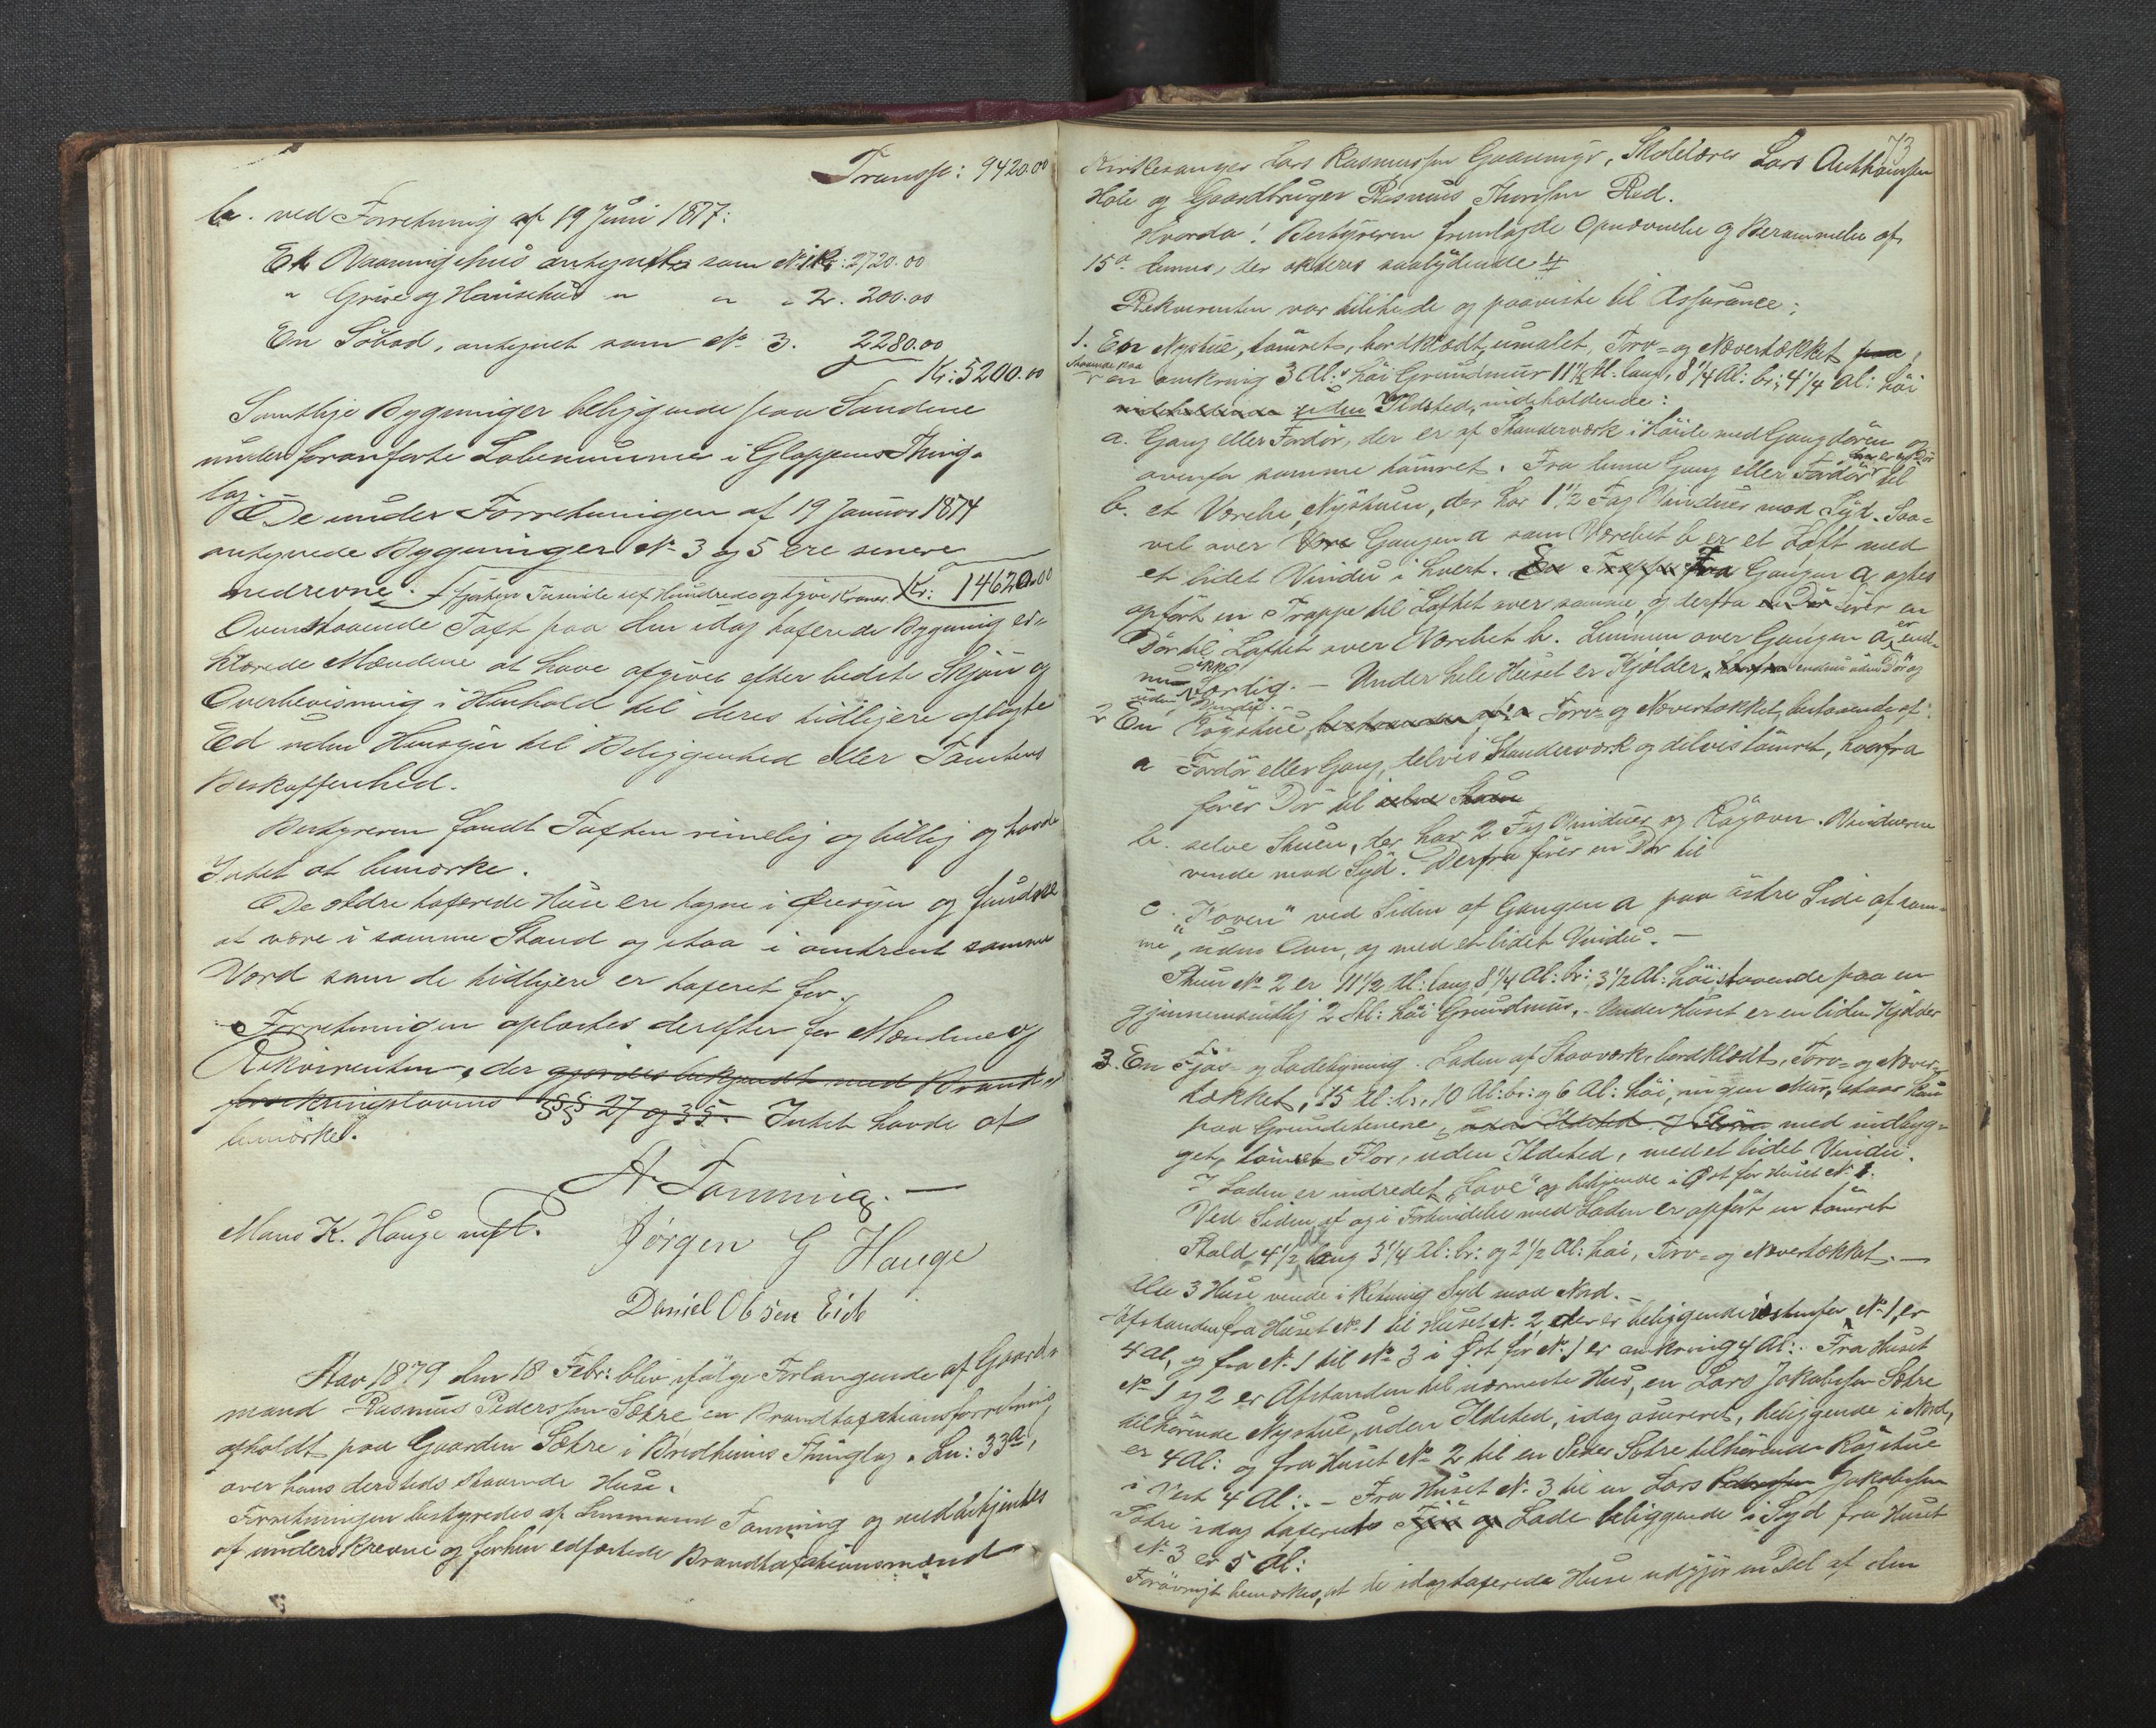 Transp: 9420.00
b. ved Forretning af 19 Juni 1877:
Et Vaaningshus antegnet som No 1 Kr: 2720.00
" Grise og Hønsehus " " " 2. 200.00
En Søbod, antegnet som No 3. 2280.00
Kr: 5200.00
Samtlige Bygninger beliggende paa Sandene
under foranførte Løbenummer i Gloppens Thing-
lag.
De under Forretningen af 19 Januar 1874
antegnede Bygninger No 3 og 5 ere senere
nedrevne. fjorten Tusinde sex Hundrede og tyve Kroner. Kr: 14620.00
Ovenstaaende Taxt paa den idag taxerede Bygning er-
klærede Mændene at have afgivet efter bedste Skjøn og
Overbevisning i Henhold til deres tidligere aflagte
Ed uden Hensyn til Beliggenhed eller Tomtens
Beskaffenhed.
Bestyreren fandt Taxten rimelig og billig og havde
Intet at bemærke.
De ældre taxerede Huse ere tagne i Øiesyn og fundne
at være i samme Stand og staa i omtrent samme
Værd som de tidligere er taxeret for.
Forretningen oplæstes derefter for Mændene og
Rekvirenten, der gjordes bekjendt med Brand-
forsikringslovens §§§ 27 og 35. Intet havde at
bemærke.
A Tonning.
Mons K. Hauge mft. Jørgen G Hauge
Daniel Olsen Eide
Aar 1879 den 18 Febr: blev ifølge Forlangende af Gaard-
mand Rasmus Pedersen Sætre en Brandtaxationsforretning
afholdt paa Gaarden Sætre i Bredheims Thinglag. Ln: 33a,
over hans dersteds staaende Huse.
Forretningen bestyredes af Lensmand Tonning og ved betjentes
af underskrevne og forhen edfæstede Brandtaxationsmænd
73
Kirkesanger Lars Rasmussen Gaasemyr, Skolelærer Lars Anthonsen
Hole og Gaardbruger Rasmus Thorsen Rød.
Hvorda! Bestyreren fremlagde Opnævnelse og Berammelse af
15de dennes, der akteres saalydende
Rekvirenten var tilstede og paaviste til Assurance:
1. En Nystue, tømret, bordklædt, umalet, Torv- og Nævertækket paa
staaende paa
en omkring 3 Al: høi Grundmur 11 1/2 Al: lang, 8 1/4 Al: br:, 4 1/4 Al: høi
indeholdende uden Ildsted, indeholdende:
a. Gang eller Fordør, der er af Standerværk i Høide med Gangdøren og
ovenfor samme tømret. Fra denne Gang eller Fordør fører en Dør til
b. et Værelse, Nystuen, der har 1 1/2 Fag Vinduer mod Syd. Saa-
vel over Gangen a som Værelset b er et Loft med
et lidet Vindu i hvert. En Trappe Fra Gangen a agtes
opført en Trappe til Loftet over samme, og derfra en Dør fører en
Dør til Loftet over Værelset b. Lemmen over Gangen a er end-
nu ikke færdig. — Under hele Huset er Kjælder, endnu uden Dør og
uden Vindu.
2 En Røgstue, bestaaende af: a Torv- og Nævertækket, bestaaende af:
a Fordør eller Gang, delvis Standerværk og delvis tømret, hvorfra
fører Dør til selve Stuen
b. selve Stuen, der har 2 Fag Vinduer og Røgovn. Vinduerne
vende mod Syd. Derfra fører en Dør til
c. "Koven" ved Siden af Gangen a paa østre Side af sam-
me, uden Ovn, og med et lidet Vindu. —
Stuen No 2 er 11 1/2 Al: lang 8 1/4 Al: br: 3 1/2 Al: høi, staaende paa en
gjennemsnitlig 2 Al: høi Grundmur. Under Huset er en liden Kjælder
3. En Fjøs- og Ladebygning. Laden af Stavværk, bordklædt, Torv- og Næver-
tækket, 15 Al: l:, 10 Al: br: og 6 Al: høi, ingen Mur, staar kun
paa Grundstenene, uden Ildsted. med indbyg-
get, tømret Flor, uden Ildsted, med et lidet Vindu.
I Laden er indredet "Lave" og beliggende i Øst for Huset No 1.
Ved Siden af og i Forbindelse med Laden er opført en tømret
Stald 4 1/2 Al lang 3 1/4 Al: br: og 2 1/2 Al: høi, Torv- og Nævertækket. —
Alle 3 Huse vende i Retning Syd mod Nord. —
Afstanden fra Huset No 1 til Huset No 2, der er beliggende vestenfor No 1, er
4 Al, og fra No 1 til No 3 i Øst for No 1 er omkring 4 Al:. Fra Huset
No 1 og 2 er Afstanden til nærmeste Hus, en Lars Jakobsen Sætre
tilhørende Nystue, uden Ildsted, idag asureret, beliggende i Nord,
er 4 Al: og fra Huset No 2 til en Peder Sætre tilhørende Røgstue
i Vest 4 Al:. — Fra Huset No 3 til en Lars Pedersen Jakobsen
Sætre idag taxerede Fjøs og Lade beliggende i Syd fra Huset
No 3 er 5 Al:
Forøvrigt bemærkes, at de idag taxerede Huse udgjør en Del af den